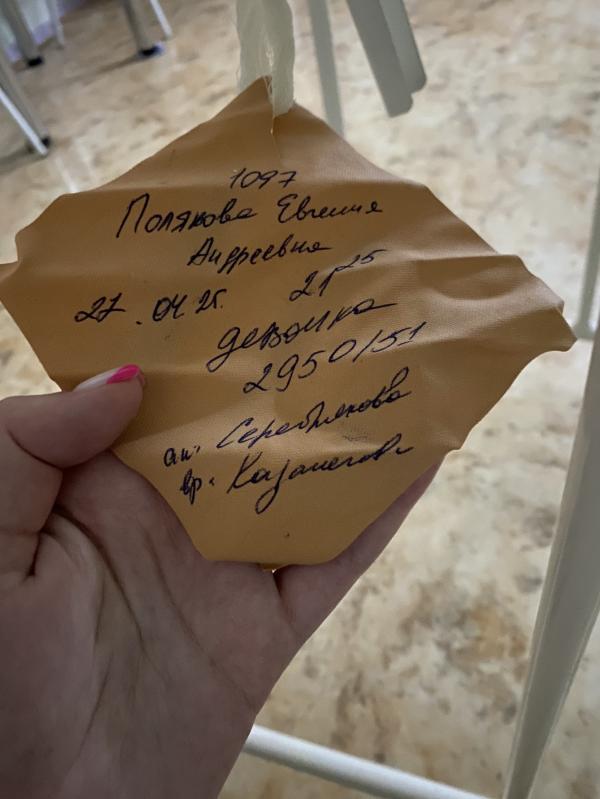 1097
Полякова Евгения
Андреевна
27.04.25. 21 25
девочка
2950/51
ак. Серебрякова
вр.